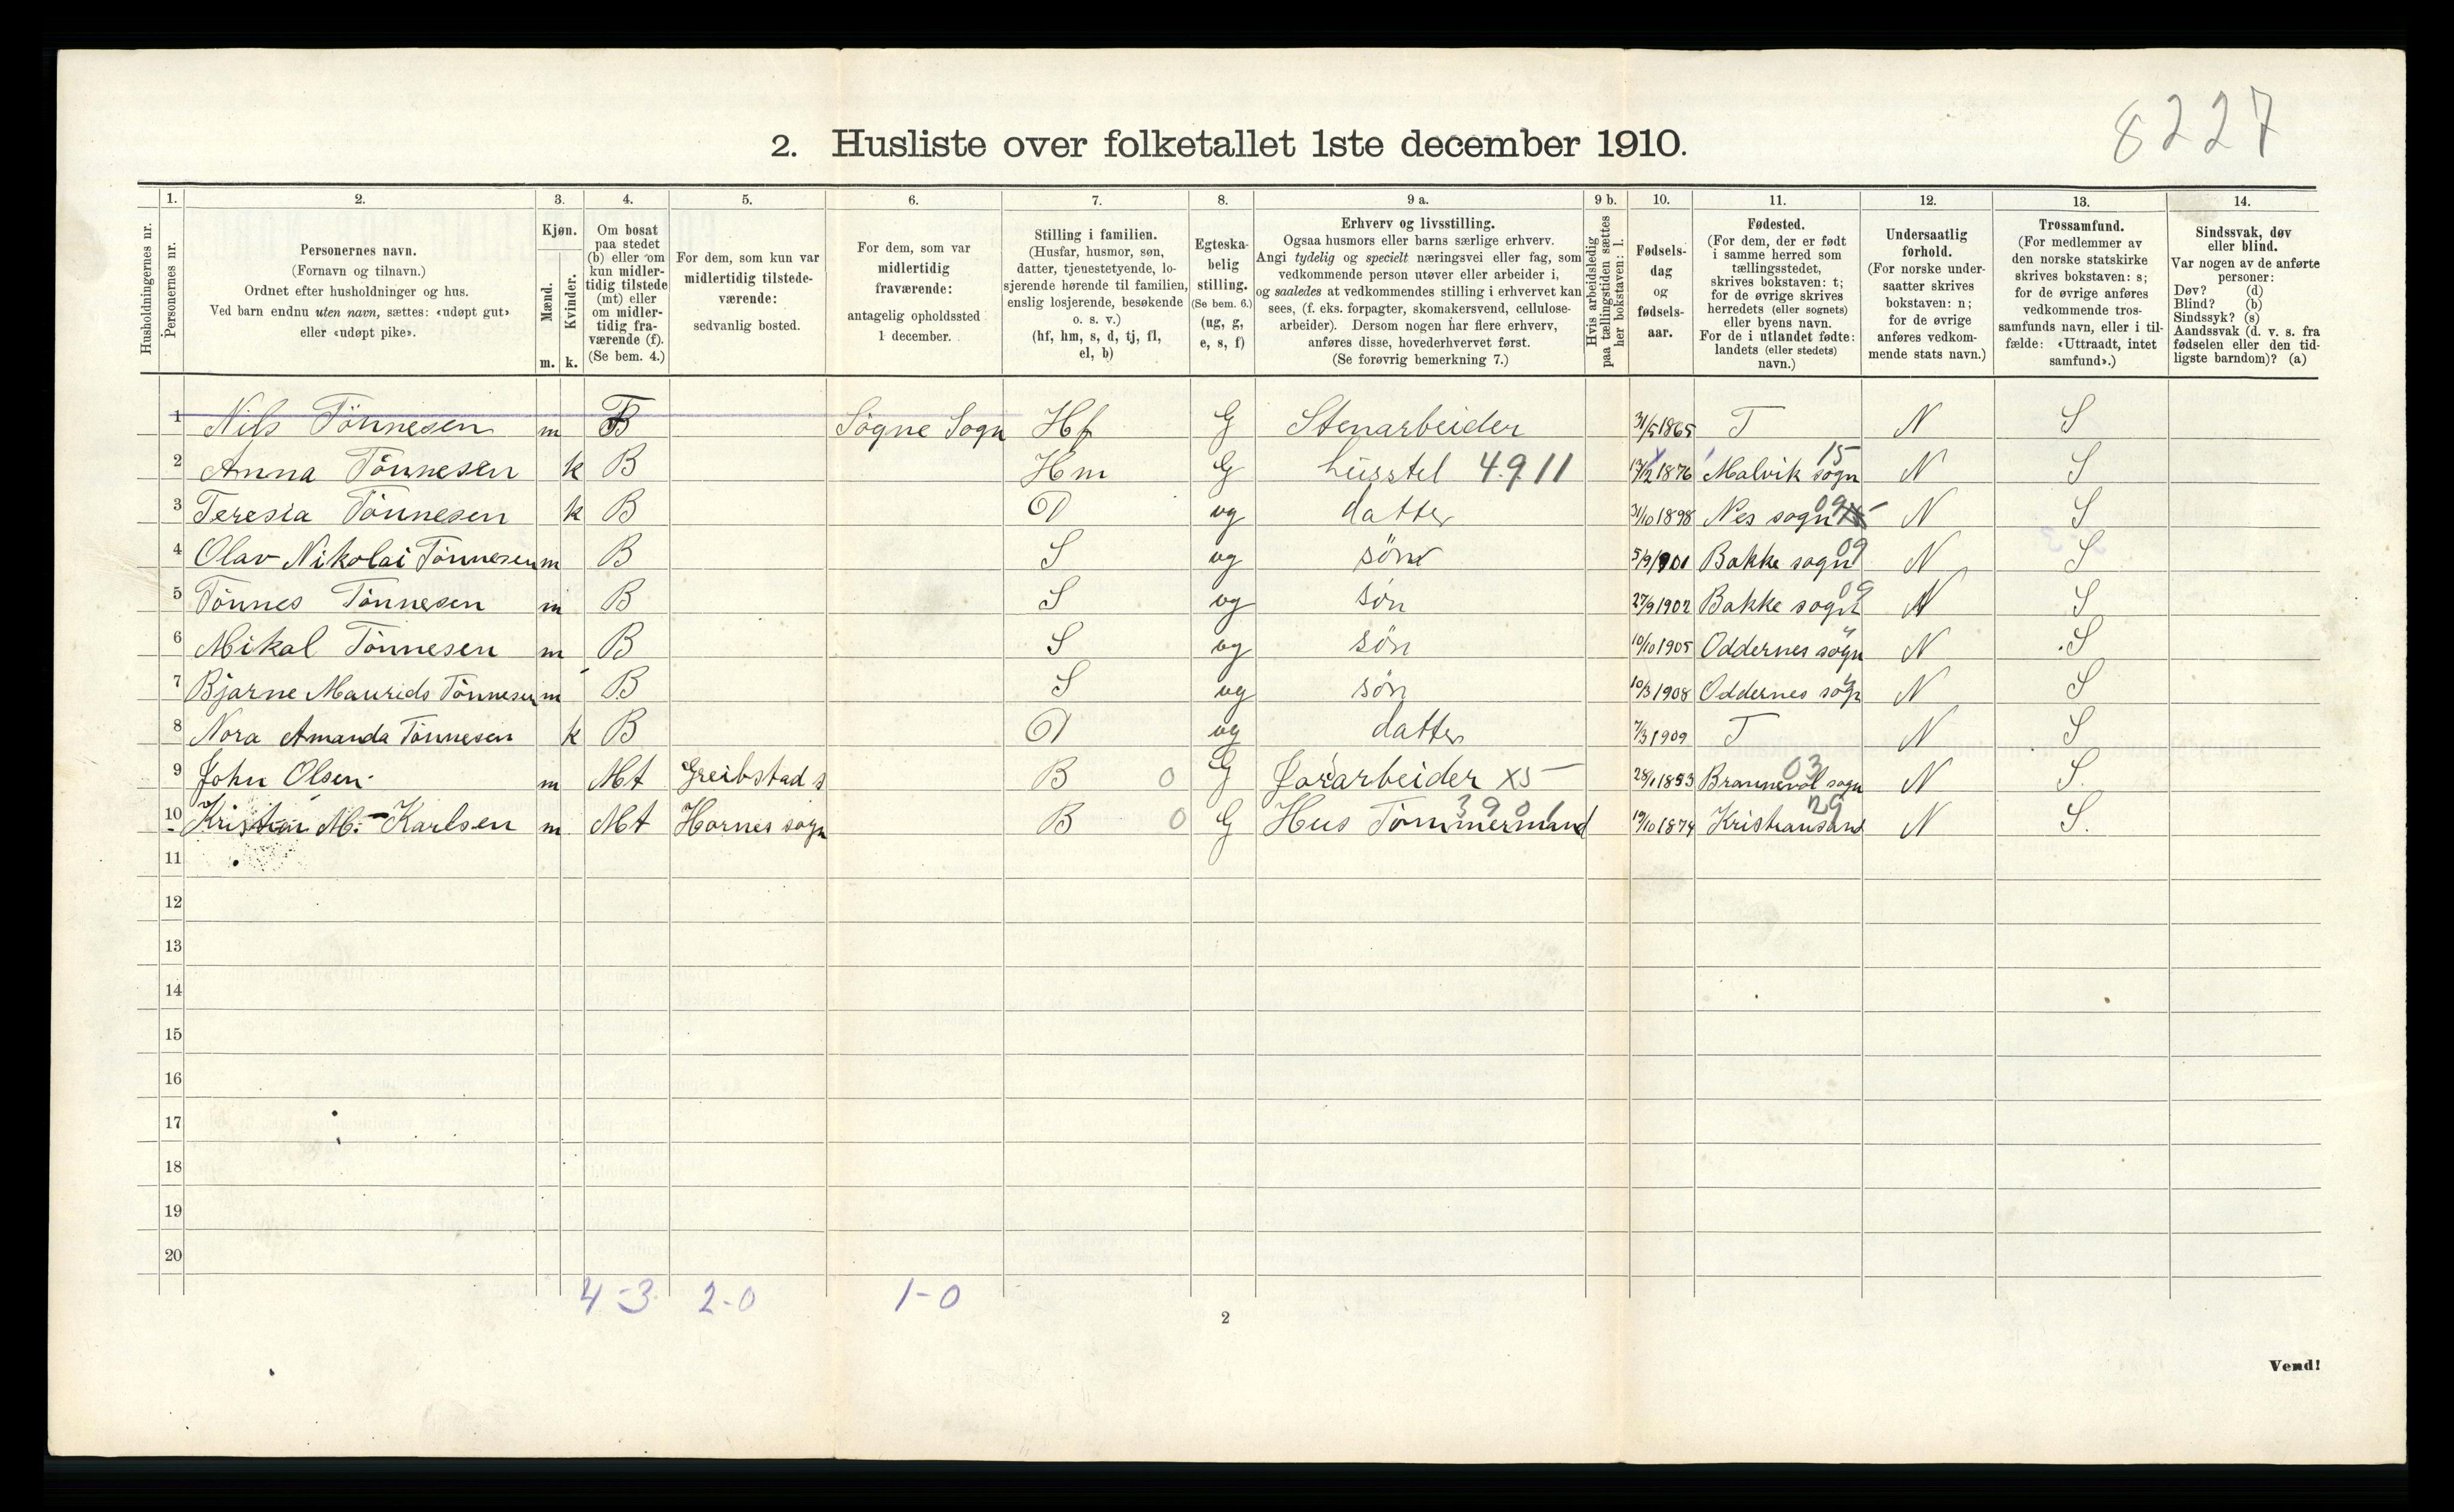 8227
2. Husliste over folketallet 1ste december 1910.
1. 2. 3. 4. 5. 6. 7. 8. 9 a. 9 b. 10. 11. 12. 13. 14.
Husholdningernes nr.
Personernes nr.
Personernes navn.
(Fornavn og tilnavn.)
Ordnet efter husholdninger og hus.
Ved barn endnu uten navn, sættes: «udøpt gut»
eller «udøpt pike».
Kjøn.
Mænd.
Kvinder.
m. k.
Om bosat
paa stedet
(b) eller om
kun midler-
tidig tilstede
(mt) eller
om midler-
tidig fra-
værende (f).
(Se bem. 4.)
For dem, som kun var
midlertidig tilstede-
værende:
sedvanlig bosted.
For dem, som var
midlertidig
fraværende:
antagelig opholdssted
1 december.
Stilling i familien.
(Husfar, husmor, søn,
datter, tjenestetyende, lo-
sjerende hørende til familien,
enslig losjerende, besøkende
o. s. v.)
(hf, hm, s, d, tj, fl,
el, b)
Egteska-
belig
stilling.
(Se bem. 6.)
(ug, g,
e, s, f)
Erhverv og livsstilling.
Ogsaa husmors eller barns særlige erhverv.
Angi tydelig og specielt næringsvei eller fag, som
vedkommende person utøver eller arbeider i,
og saaledes at vedkommendes stilling i erhvervet kan
sees, (f. eks. forpagter, skomakersvend, cellulose-
arbeider). Dersom nogen har flere erhverv,
anføres disse, hovederhvervet først.
(Se forøvrig bemerkning 7.)
Hvis arbeidsledig
paa tællingstiden sættes
her bokstaven: l.
Fødsels-
dag
og
fødsels-
aar.
Fødested.
(For dem, der er født
i samme herred som
tællingsstedet,
skrives bokstaven: t;
for de øvrige skrives
herredets (eller sognets)
eller byens navn.
For de i utlandet fødte:
landets (eller stedets)
navn.)
Undersaatlig
forhold.
(For norske under-
saatter skrives
bokstaven: n;
for de øvrige
anføres vedkom-
mende stats navn.)
Trossamfund.
(For medlemmer av
den norske statskirke
skrives bokstaven: s;
for de øvrige anføres
vedkommende tros-
samfunds navn, eller i til-
fælde: «Uttraadt, intet
samfund».)
Sindssvak, døv
eller blind.
Var nogen av de anførte
personer:
Døv? (d)
Blind? (b)
Sindssyk? (s)
Aandssvak (d. v. s. fra
fødselen eller den tid-
ligste barndom)? (a)
1 Nils Tönnesen m Sögne Sogn Hf G Stenarbeider 31/5 1865 T N S
2 Anna Tönnesen k B Hm G husstel 4.9.11 1876 Malvik sogn 15 N S
3 Teresia Tönnesen k B D ug datter 31/10 1898 Nes sogn 09 N S
4 Olav Nikolai Tönnesen m B S ug sön 5/9 1901 Bakke sogn 09 N S
5 Tönnes Tönnesen m B S ug sön 27/9 1902 Bakke sogn 09 N S
6 Mikal Tönnesen m B S ug sön 10/10 1905 Oddernes sogn N S
7 Bjarne Maurids Tönnesen m B S ug sön 10/3 1908 Oddernes sogn N S
8 Nora Amanda Tönnesen k B D ug datter 7/3 1909 T N S
9 John Olsen m Mt Greibstad s B 0 G Jorarbeider X5 28/1 1853 sogn 03 N S.
10 Kristian M. Karlsen m Mt Hornes sogn B 0 G Hus Tömmermand 3901 19/10 1874 Kristiansand 29 N S.
11
12
13
14
15
16
17
18
19
20
4-3 2-0 1-0
2
Vend!